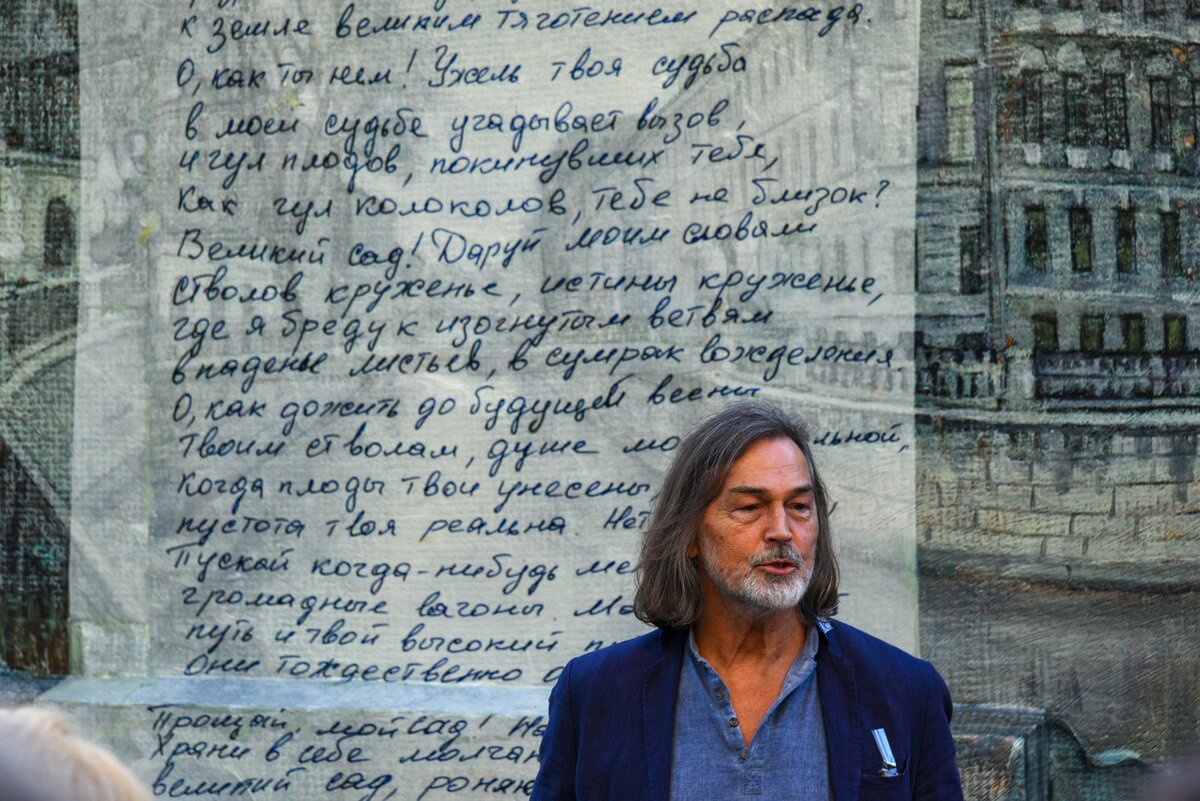 к земле великим тяготением распада.
О, как ты нем! Ужель твоя судьба
в моей судьбе угадывает вызов,
и гул плодов, покинувших тебя,
как гул колоколов, тебе не близок?
Великий сад! Даруй моим словам
стволов круженье, истины круженье,
где я бреду к изогнутым ветвям
в паденье листьев, в сумрак вожделения.
О, как дожить до будущей весны
твоим стволам, душе мо льной,
когда плоды твои унесены
пустота твоя реальна. Нет
Пускай когда-нибудь ме
громадные вагоны.
путь и твой высокий
они тождественно
Прощай, мой сад! На
Храни в себе молчан
великий сад, роняю